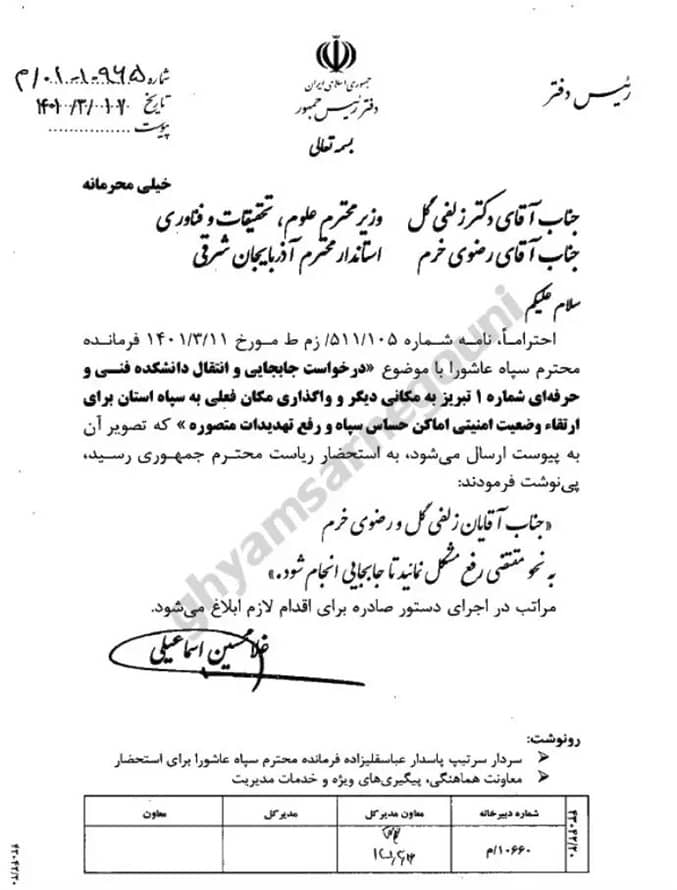 جمهوری اسلامی ایران
دفتر رئیس جمهور
رئیس دفتر
شماره م/۰۱-۱۰۹۶۵
تاریخ
پیوست ................
بسمه تعالی
خیلی محرمانه
جناب آقای دکتر زلفی گل وزیر محترم علوم، تحقیقات و فناوری
جناب آقای رضوی خرم استاندار محترم آذربایجان شرقی
سلام علیکم
احتراماً، نامه شماره ۵۱۱/۱۰۵/ زم ط مورخ ۱۴۰۱/۳/۱۱ فرمانده
محترم سپاه عاشورا با موضوع «درخواست جابجایی و انتقال دانشکده فنی و
حرفه‌ای شماره ۱ تبریز به مکانی دیگر و واگذاری مکان فعلی به سپاه استان برای
ارتقاء وضعیت امنیتی اماکن حساس سپاه و رفع تهدیدات متصوره» که تصویر آن
به پیوست ارسال می‌شود، به استحضار ریاست محترم جمهوری رسید،
پی‌نوشت فرمودند:
«جناب آقایان زلفی گل و رضوی خرم
به نحو مقتضی رفع مشکل نمائید تا جابجایی انجام شود.»
مراتب در اجرای دستور صادره برای اقدام لازم ابلاغ می‌شود.
غلامحسین اسماعیلی
رونوشت:
سردار سرتیپ پاسدار عباسقلیزاده فرمانده محترم سپاه عاشورا برای استحضار
معاونت هماهنگی، پیگیری‌های ویژه و خدمات مدیریت
شماره دبیرخانه معاون مدیرکل مدیرکل معاون
م/۱۰۶۶۰
ghyamsarnegouni